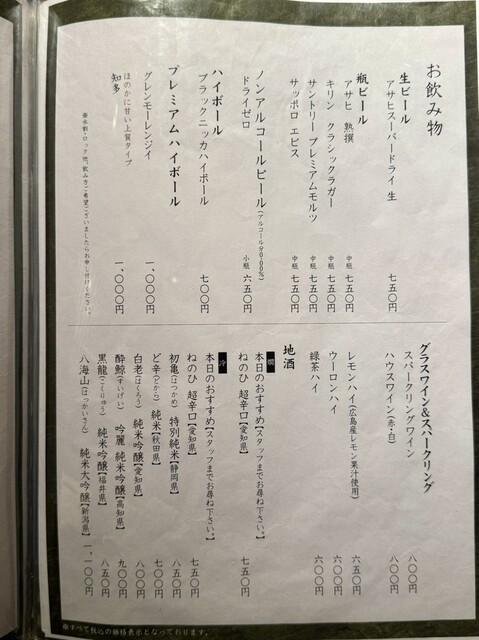 お飲み物
生ビール
アサヒスーパードライ 生 七五〇円
瓶ビール
アサヒ 熟撰 中瓶 七五〇円
キリン クラシックラガー 中瓶 七五〇円
サントリー プレミアムモルツ 中瓶 七五〇円
サッポロ エビス 中瓶 七五〇円
ノンアルコールビール(アルコール分0.00%)
ドライゼロ 小瓶 六五〇円
ハイボール
ブラックニッカハイボール 七〇〇円
プレミアムハイボール
グレンモーレンジィ 一、〇〇〇円
ほのかに甘い上質タイプ
知多 一、〇〇〇円
※水割・ロック他、飲み方ご希望ございましたらお申し付けください。
グラスワイン&スパークリング
スパークリングワイン 八〇〇円
ハウスワイン(赤・白) 八〇〇円
レモンハイ(広島産レモン果汁使用) 六五〇円
ウーロンハイ 六〇〇円
緑茶ハイ 六〇〇円
地酒
燗
本日のおすすめ【スタッフまでお尋ね下さい。】
ねのひ 超辛口【愛知県】 七五〇円
冷
本日のおすすめ【スタッフまでお尋ね下さい。】
ねのひ 超辛口【愛知県】 七五〇円
初亀(はつかめ) 特別純米【静岡県】 八五〇円
ど辛(どから) 純米【秋田県】 七〇〇円
白老(はくろう) 純米吟醸【愛知県】 八〇〇円
酔鯨(すいげい) 吟麗 純米吟醸【高知県】 九〇〇円
黒龍(こくりゅう) 純米吟醸【福井県】 八五〇円
八海山(はっかいさん) 純米大吟醸【新潟県】 一、一〇〇円
※すべて税込の価格表示となっております。